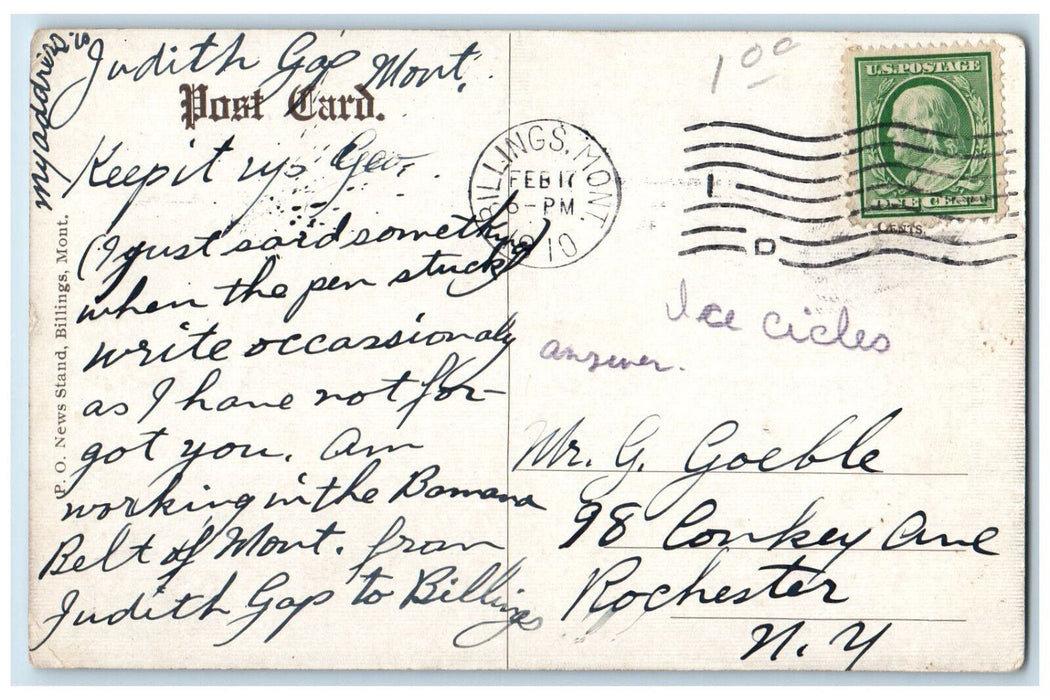 my address is
Judith Gap Mont.
Post Card.
Keep it up Geo.
(I just said something)
when the pen stuck
write occassionaly
as I have not for-
got you. Am
working in the Banana
Belt of Mont. from
Judith Gap to Billings
P. O. News Stand, Billings, Mont.
BILLINGS, MONT.
FEB 17
6-PM
1910
1
D
1 00
U.S. POSTAGE
ONE CENT
CENTS.
Ice cicles
answer.
Mr. G. Goeble
98 Conkey Ave
Rochester
N. Y